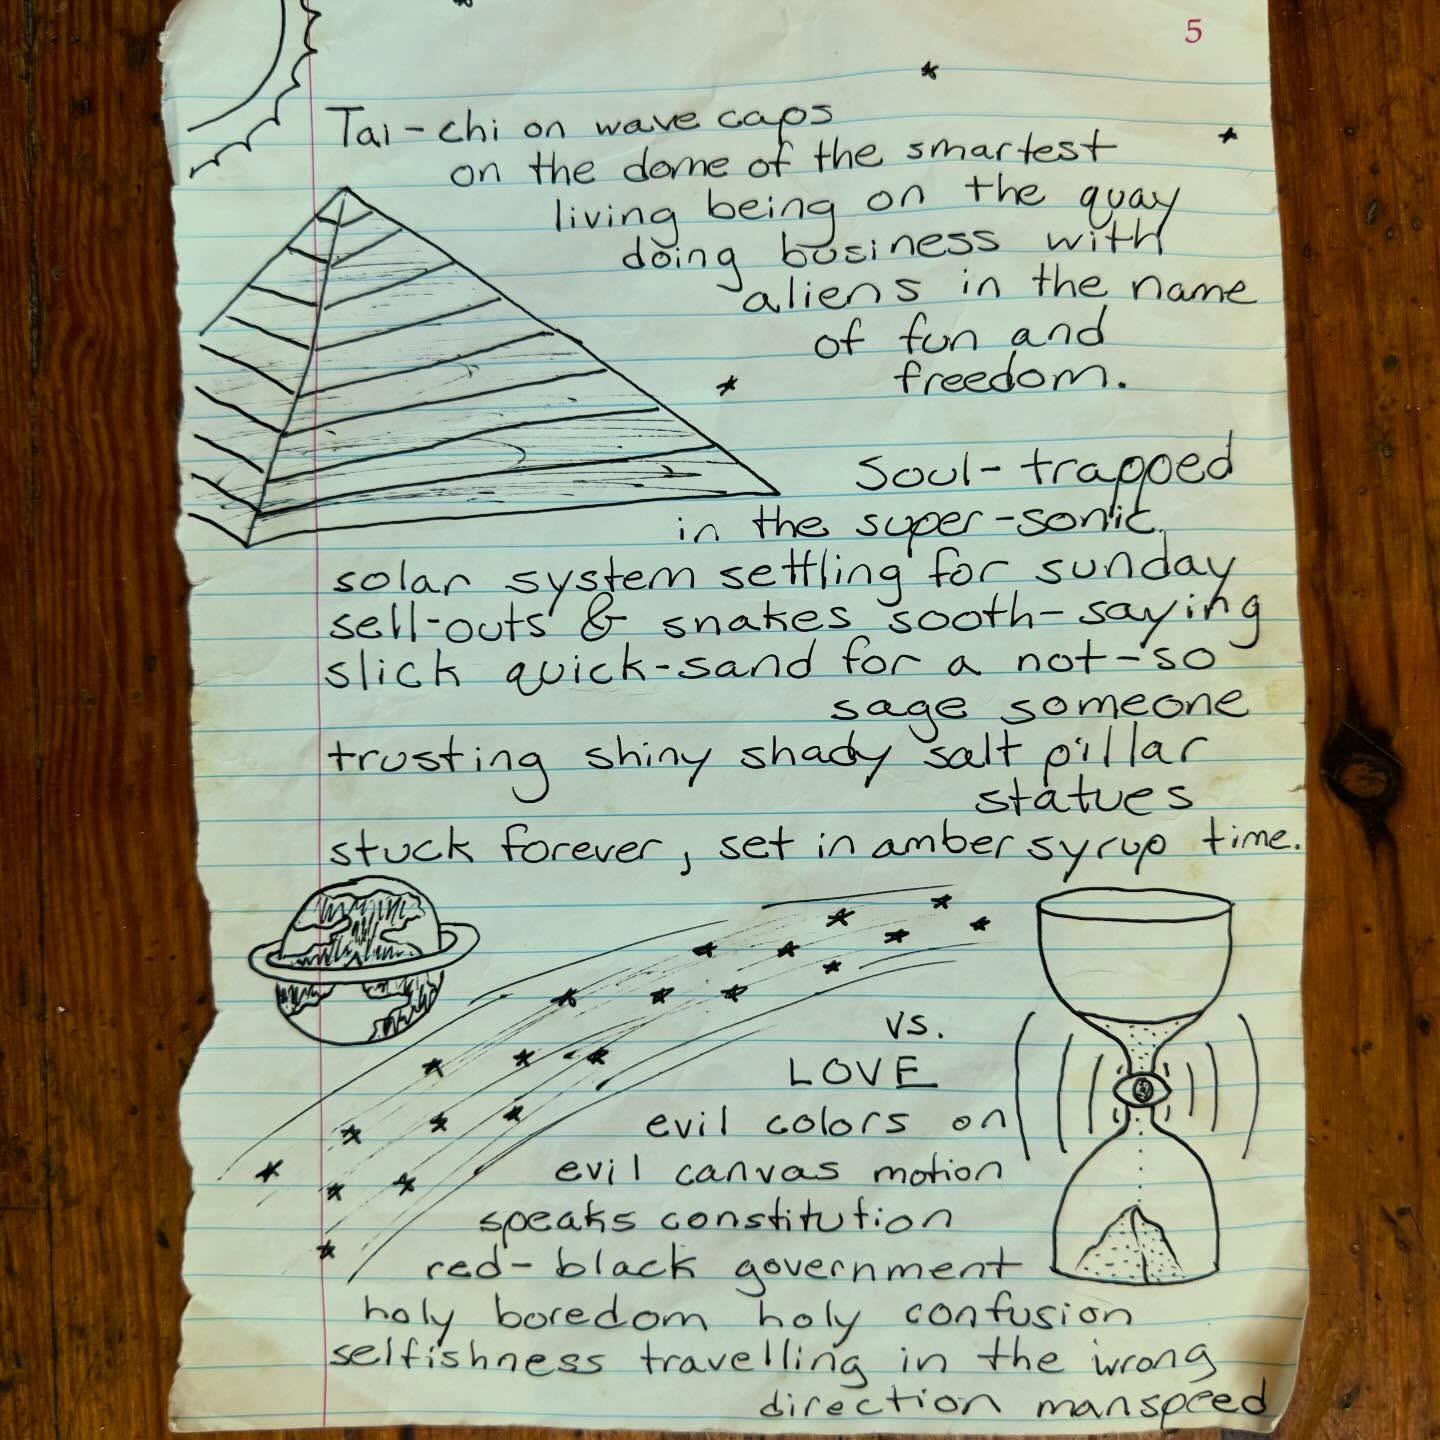 5
Tai-chi on wave caps
on the dome of the smartest
living being on the quay
doing business with
aliens in the name
of fun and
freedom.
Soul-trapped
in the super-sonic
solar system settling for sunday
sell-outs & snakes sooth-saying
slick quick-sand for a not-so
sage someone
trusting shiny shady salt pillar
statues
stuck forever, set in amber syrup time.
vs.
LOVE
evil colors on
evil canvas motion
speaks constitution
red-black government
holy boredom holy confusion
selfishness travelling in the wrong
direction manspeed